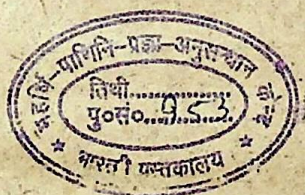 महर्षि-पाणिनि-प्रज्ञा-अनुसन्धान केन्द्र
तिथी..............
पु०सं०...953...
भारती पुस्तकालय